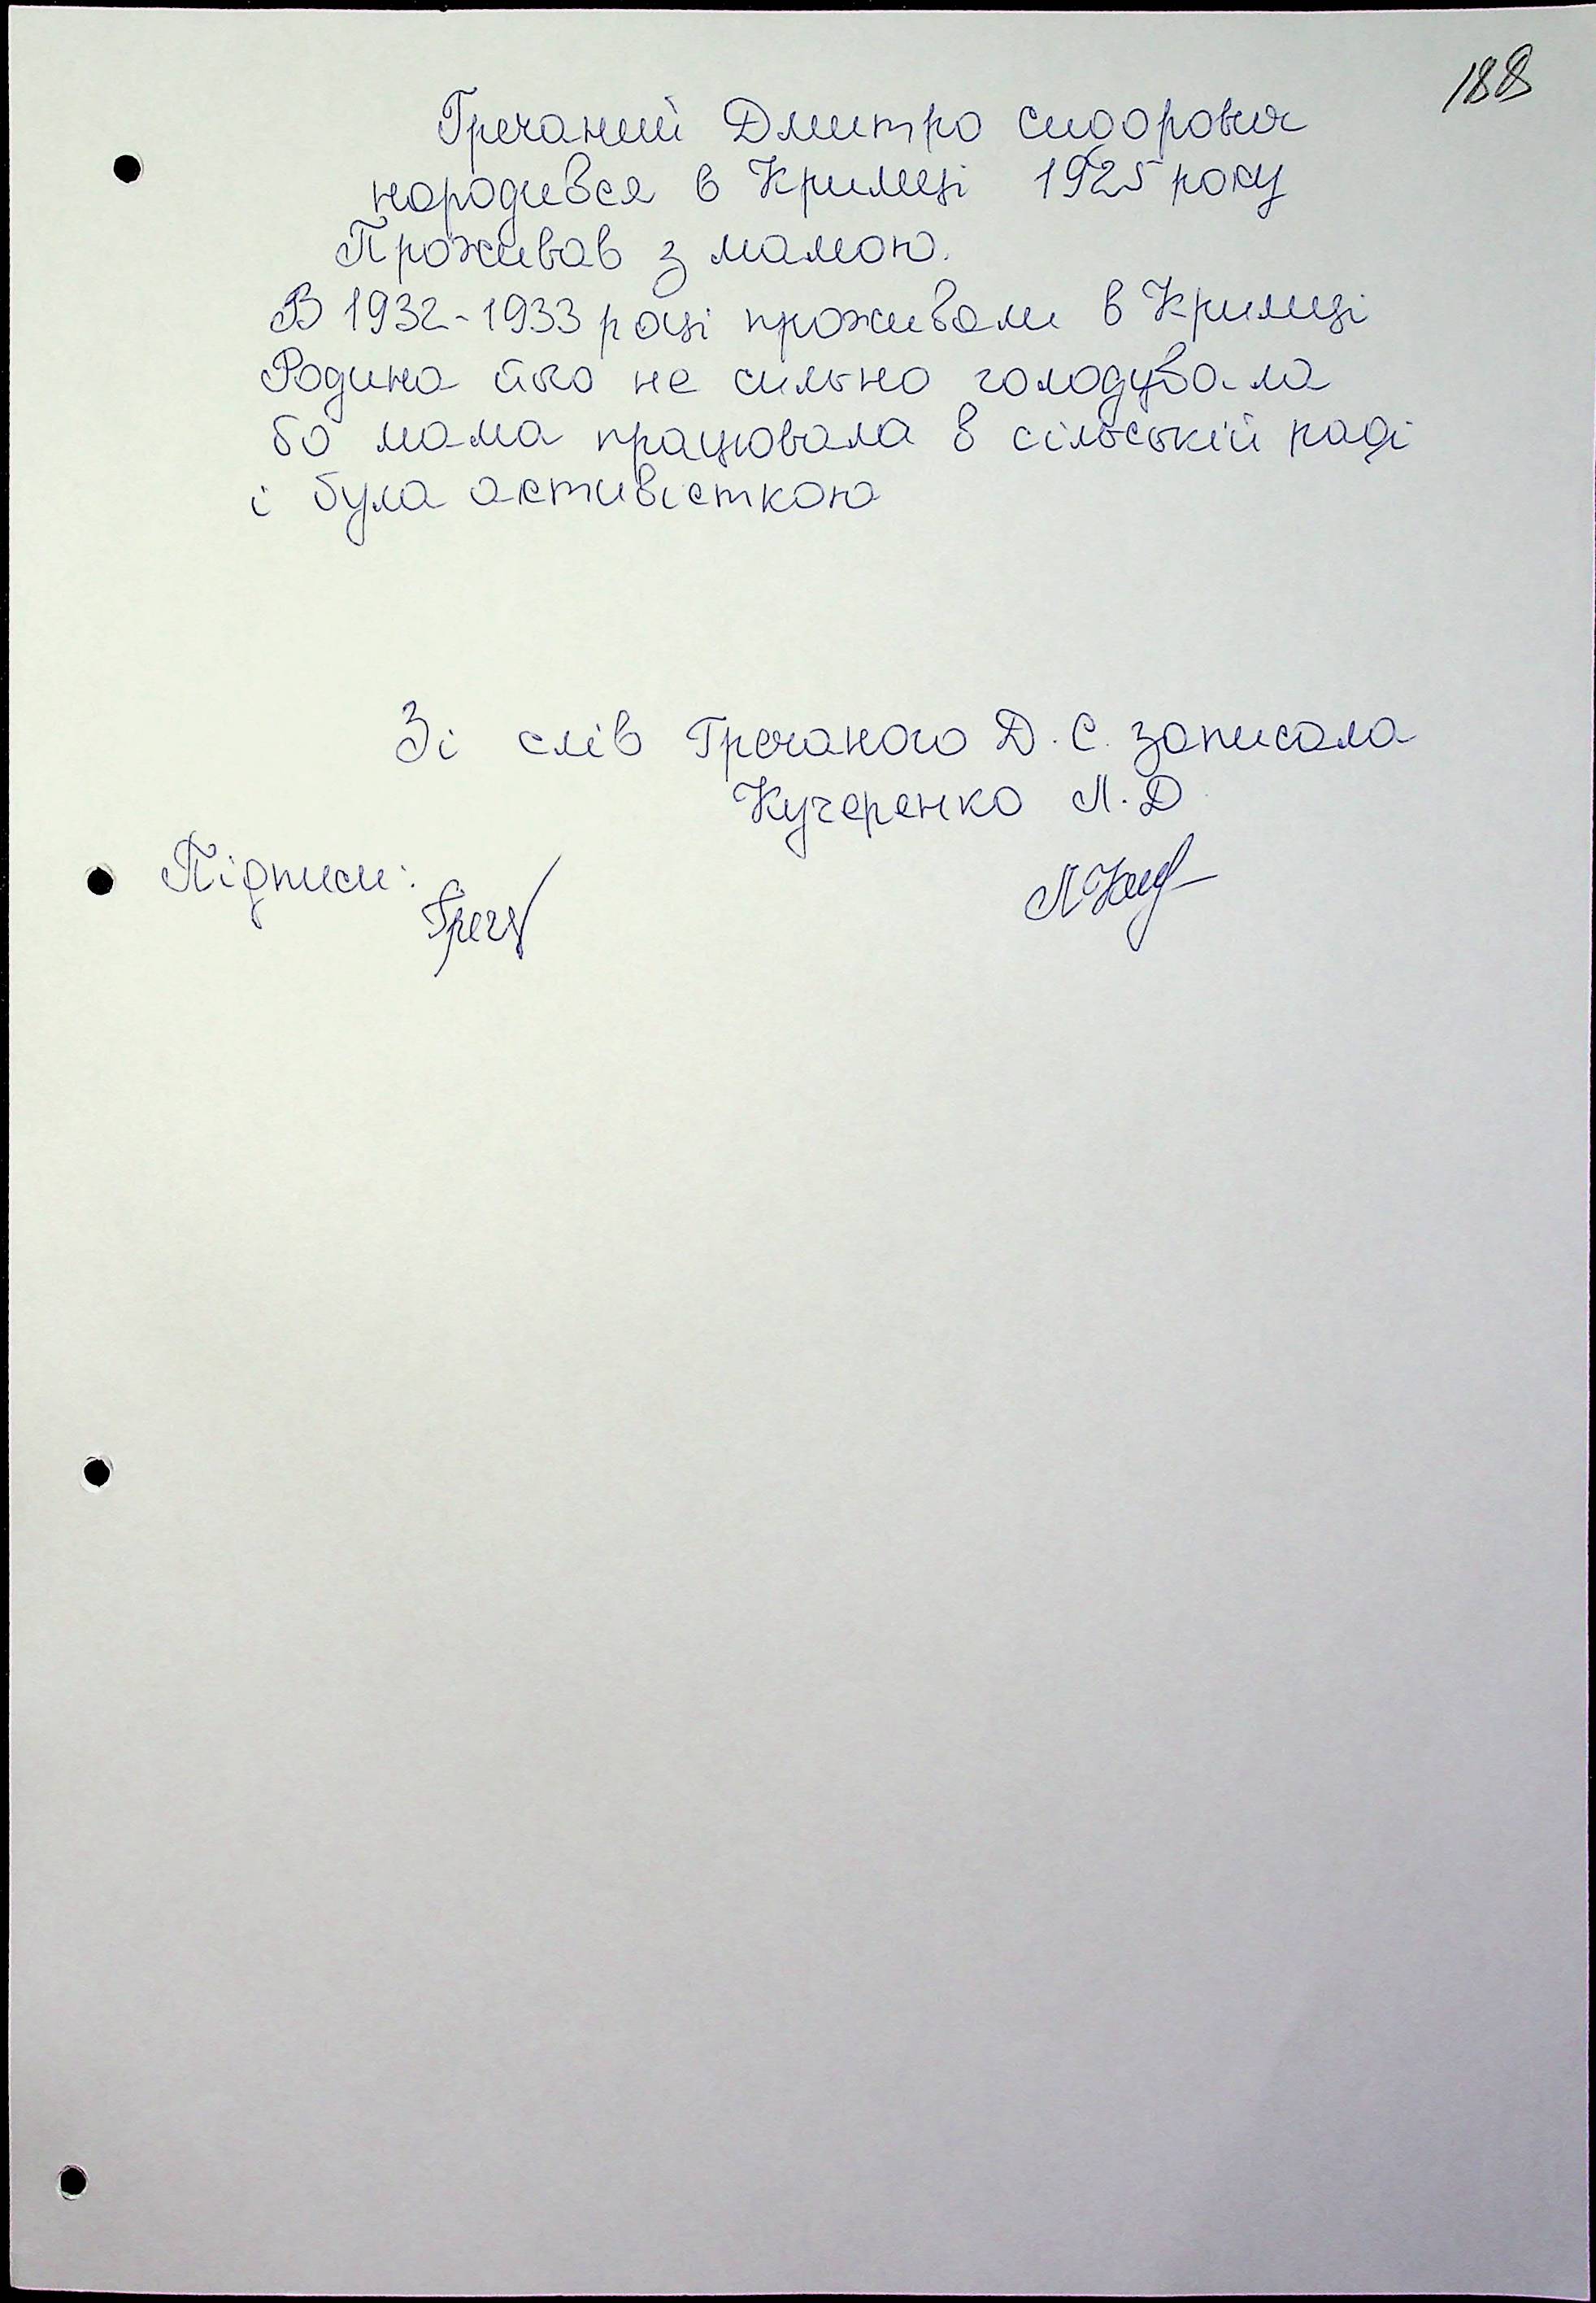 188
Гречаний Дмитро Сидорович
народився в Крилеці 1925 року
Проживав з мамою.
В 1932-1933 році проживали в Крилеці
Родина його не сильно голодувала
бо мама працювала в сільській раді
і була активісткою
Зі слів Гречаного Д. С. записала
Кучеренко Л. Д
Підписи: